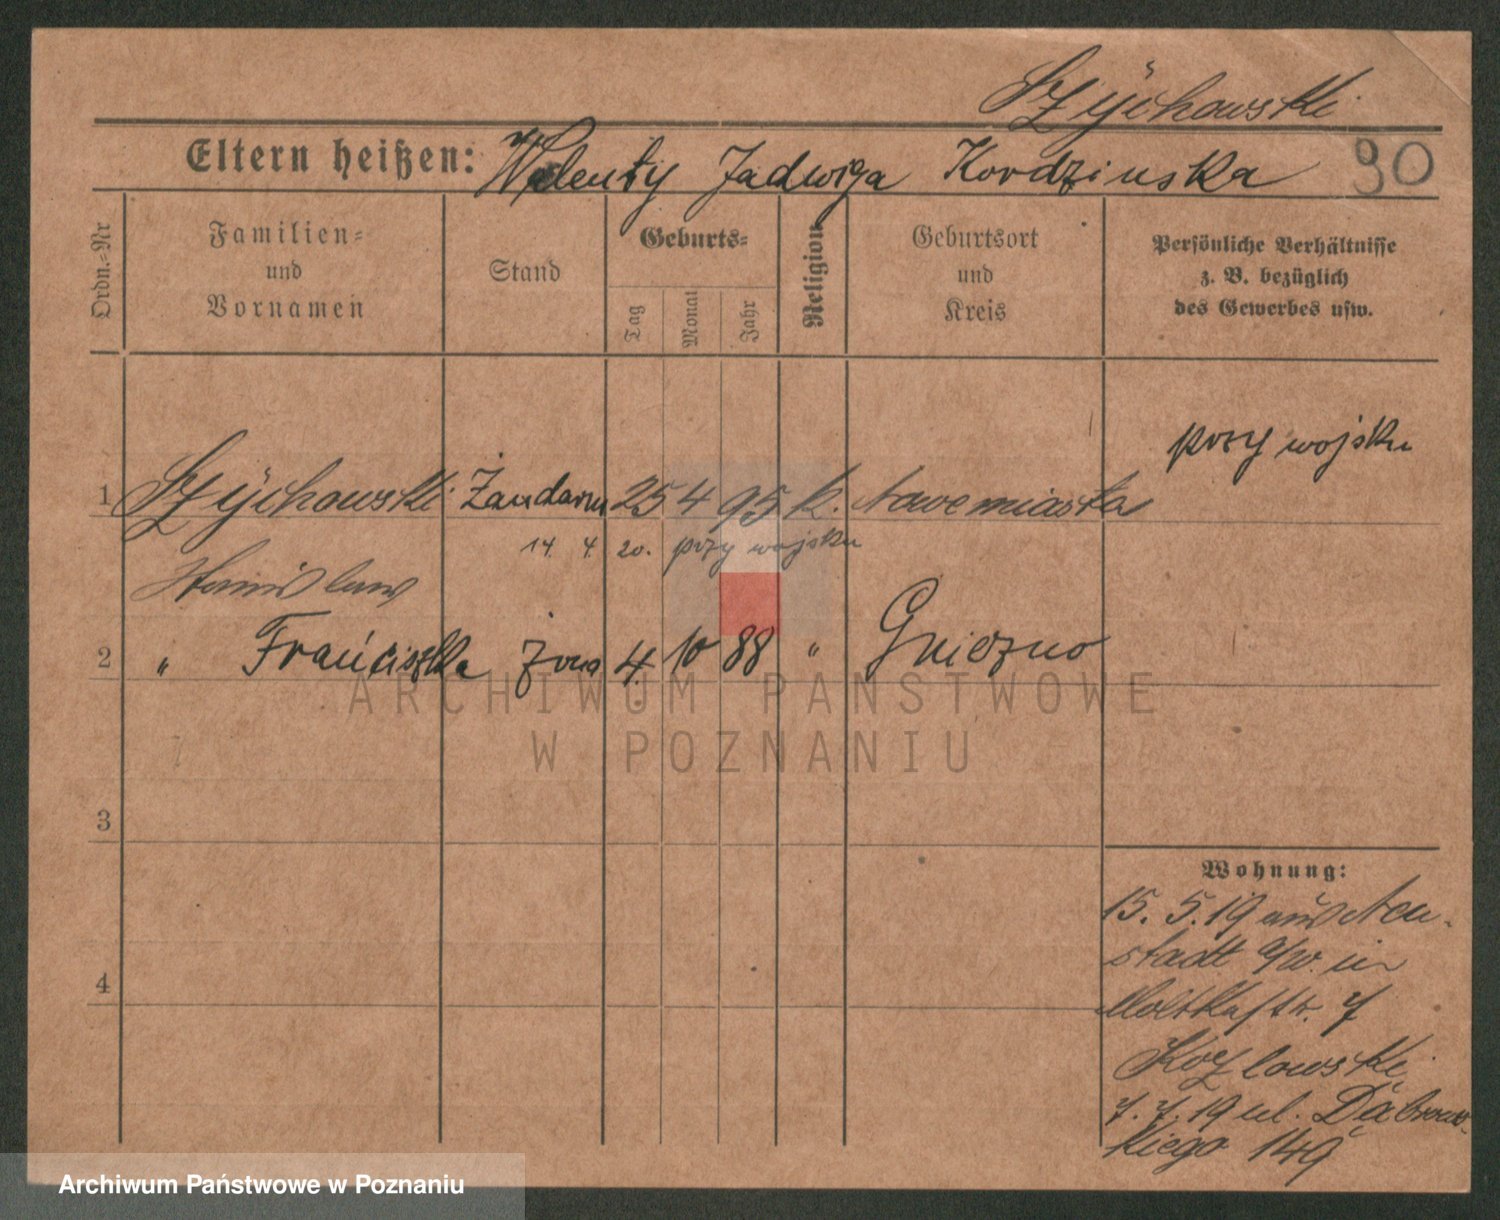 Szÿchowski
Eltern heißen: Walenty Jadwiga Kordzińska 90
Ordn.-Nr
Familien-
und
Vornamen
Stand
Geburts-
Tag
Monat
Jahr
Religion
Geburtsort
und
Kreis
Persönliche Verhältnisse
z. B. bezüglich
des Gewerbes usw.
przy wojsku
1 Szÿchowski Żandarm 25 4 95 k. Nowemiasta
14. 4. 20. przy wojsku
Stanislaw
2 " Franciszka żona 4. 10 88 " Gniezno
3
4
Wohnung:
15. 5. 19 aus Neu-
stadt a/W. in
Moltkestr. 7
Kozlowski
7. 7. 19 ul. Dąbrow-
kiego 149
ARCHIWUM PAŃSTWOWE
W POZNANIU
Archiwum Państwowe w Poznaniu